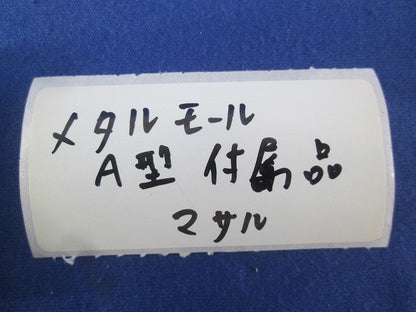 メタルモール
A型 付属品
マサル